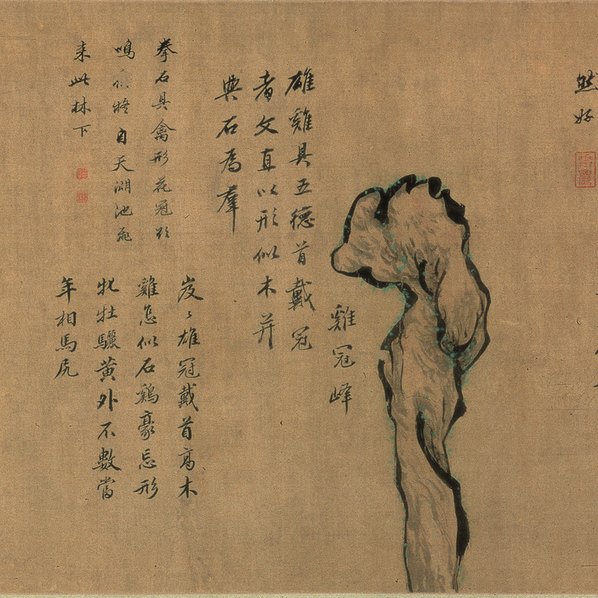 然好
雞冠峰
雄雞具五德首戴冠
者文直以形似木并
與石為羣
岌〻雄冠戴首高木
雞怎似石鷄豪忘形
牝牡驪黃外不數當
年相馬尻
拳石具禽形花冠欲
鳴將自天湖池飛
来此林下